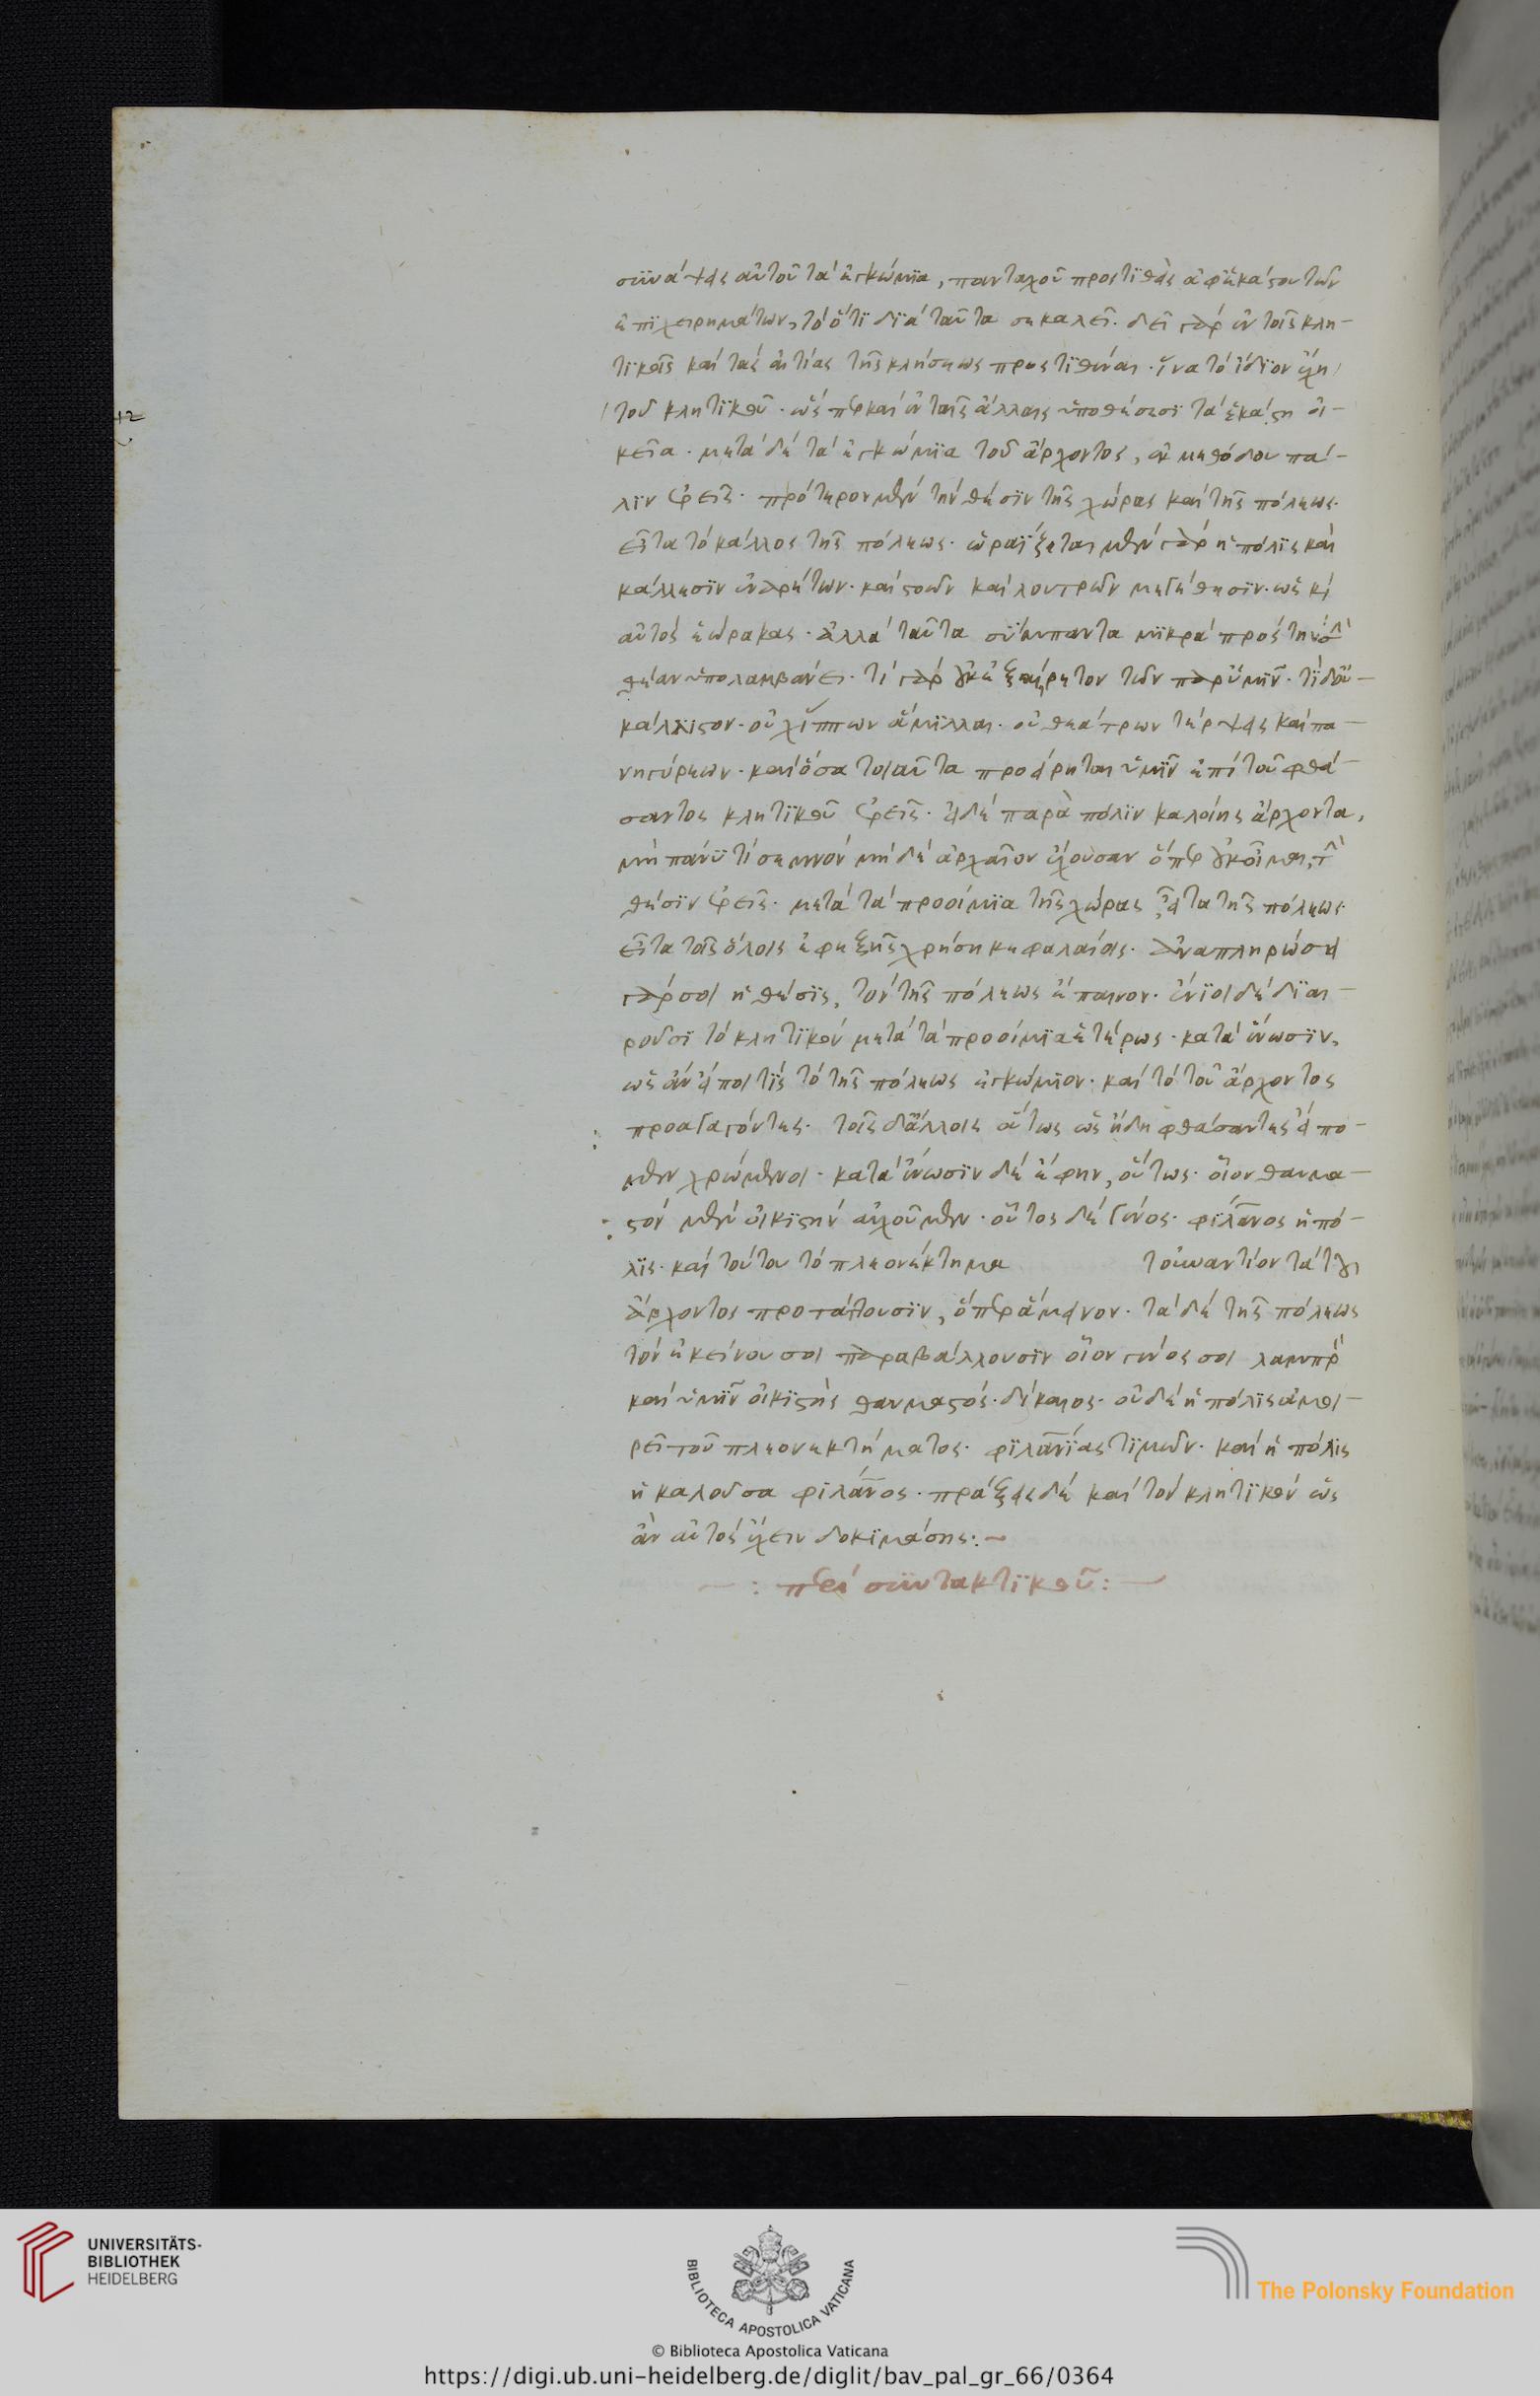 συνάψεις αὐτοῦ τὰ ἐγκώμια, πανταχοῦ προστιθεὶς ἀφ' ἑκάστου τῶν
ἐπιχειρημάτων, τὸ ὅτι διὰ ταῦτα σε καλεῖ. δεῖ γὰρ ἐν τοῖς κλη-
τικοῖς καὶ τὰς αἰτίας τῆς κλήσεως προστιθέναι. ἵνα τὸ ἴδιον ἔχῃ
τοῦ κλητικοῦ. ὥσπερ καὶ ἐν ταῖς ἄλλαις ὑποθέσεσι τὰ ἑκάστῃ οἰ-
κεῖα. μετὰ δὲ τὰ ἐγκώμια τοῦ ἄρχοντος, ἐκ μεθόδου πά-
λιν ἐρεῖς. πρότερον μὲν τὴν θέσιν τῆς χώρας καὶ τῆς πόλεως.
εἶτα τὸ κάλλος τῆς πόλεως. ὡραΐζεται μὲν γὰρ ἡ πόλις καὶ
κάλλεσιν εὑρεμάτων. καὶ στοῶν καὶ λουτρῶν μεγέθεσιν. ὡς καὶ
αὐτὸς ἑώρακας. ἀλλὰ ταῦτα σύμπαντα μικρὰ πρὸς τὴν σὴν
θέαν ὑπολαμβάνει. τί γὰρ οὐκ ἐξαίρετον τῶν παρ' ὑμῖν. τί δ' οὐ
κάλλιστον. οὐχ ἵππων ἅμιλλαι. οὐ θεάτρων τέρψεις καὶ πα-
νηγύρεων. καὶ ὅσα τοιαῦτα προείρηται ὑμῖν ἐπὶ τοῦ φθά-
σαντος κλητικοῦ ἐρεῖς. εἰ δὲ παρὰ πόλιν καλοίης ἄρχοντα,
μὴ πάνυ τι σεμνὸν μηδὲ ἀρχαῖον ἔχουσαν ὅπερ οὐκ οἶμαι, τὴν
θέσιν ἐρεῖς. μετὰ τὰ προοίμια τῆς χώρας, εἶτα τῆς πόλεως.
εἶτα τοῖς ὅλοις ἐφεξῆς χρήσῃ κεφαλαίοις. ἀναπληρώσει
γάρ σοι ἡ θέσις, τὸν τῆς πόλεως ἔπαινον. ἔνιοι δὲ διαι-
ροῦσι τὸ κλητικὸν μετὰ τὰ προοίμια ἑτέρως. κατὰ ἕνωσιν,
ὡς ἂν εἴποι τις τὸ τῆς πόλεως ἐγκώμιον. καὶ τὸ τοῦ ἄρχοντος
προαγαγόντες. τοῖς δ' ἄλλοις οὕτως ὡς ἤδη φθάσαντες εἴπο-
μεν χρώμενοι. κατὰ ἕνωσιν δὲ ἔφην, οὕτως. οἷον θαυμα-
στὸν μὲν οἰκιστὴν αὐχοῦμεν. οὗτος δὲ γένος. φιλάνος ἡ πό-
λις. καὶ τούτου τὸ πλεονέκτημα τοὐναντίον τὰ τοῦ
ἄρχοντος προτάττουσιν, ὅπερ ἄμεινον. τὰ δὲ τῆς πόλεως
τὸν ἐκείνου σοι παραβάλλουσιν οἷον γένος σοι λαμπρὸν
καὶ ὑμῖν οἰκιστὴς θαυμαστός. δίκαιος. οὐδὲ ἡ πόλις ἀμοι-
ρεῖ τοῦ πλεονεκτήματος. φιλανίας τιμῶν. καὶ ἡ πόλις
ἡ καλοῦσα φιλάνος. πράξεις δὲ καὶ τὸν κλητικὸν ὡς
ἂν αὐτὸς ἔχειν δοκιμάσῃς:~
: περὶ συντακτικοῦ:
UNIVERSITÄTS-
BIBLIOTHEK
HEIDELBERG
BIBLIOTECA APOSTOLICA VATICANA
The Polonsky Foundation
© Biblioteca Apostolica Vaticana
https://digi.ub.uni-heidelberg.de/diglit/bav_pal_gr_66/0364